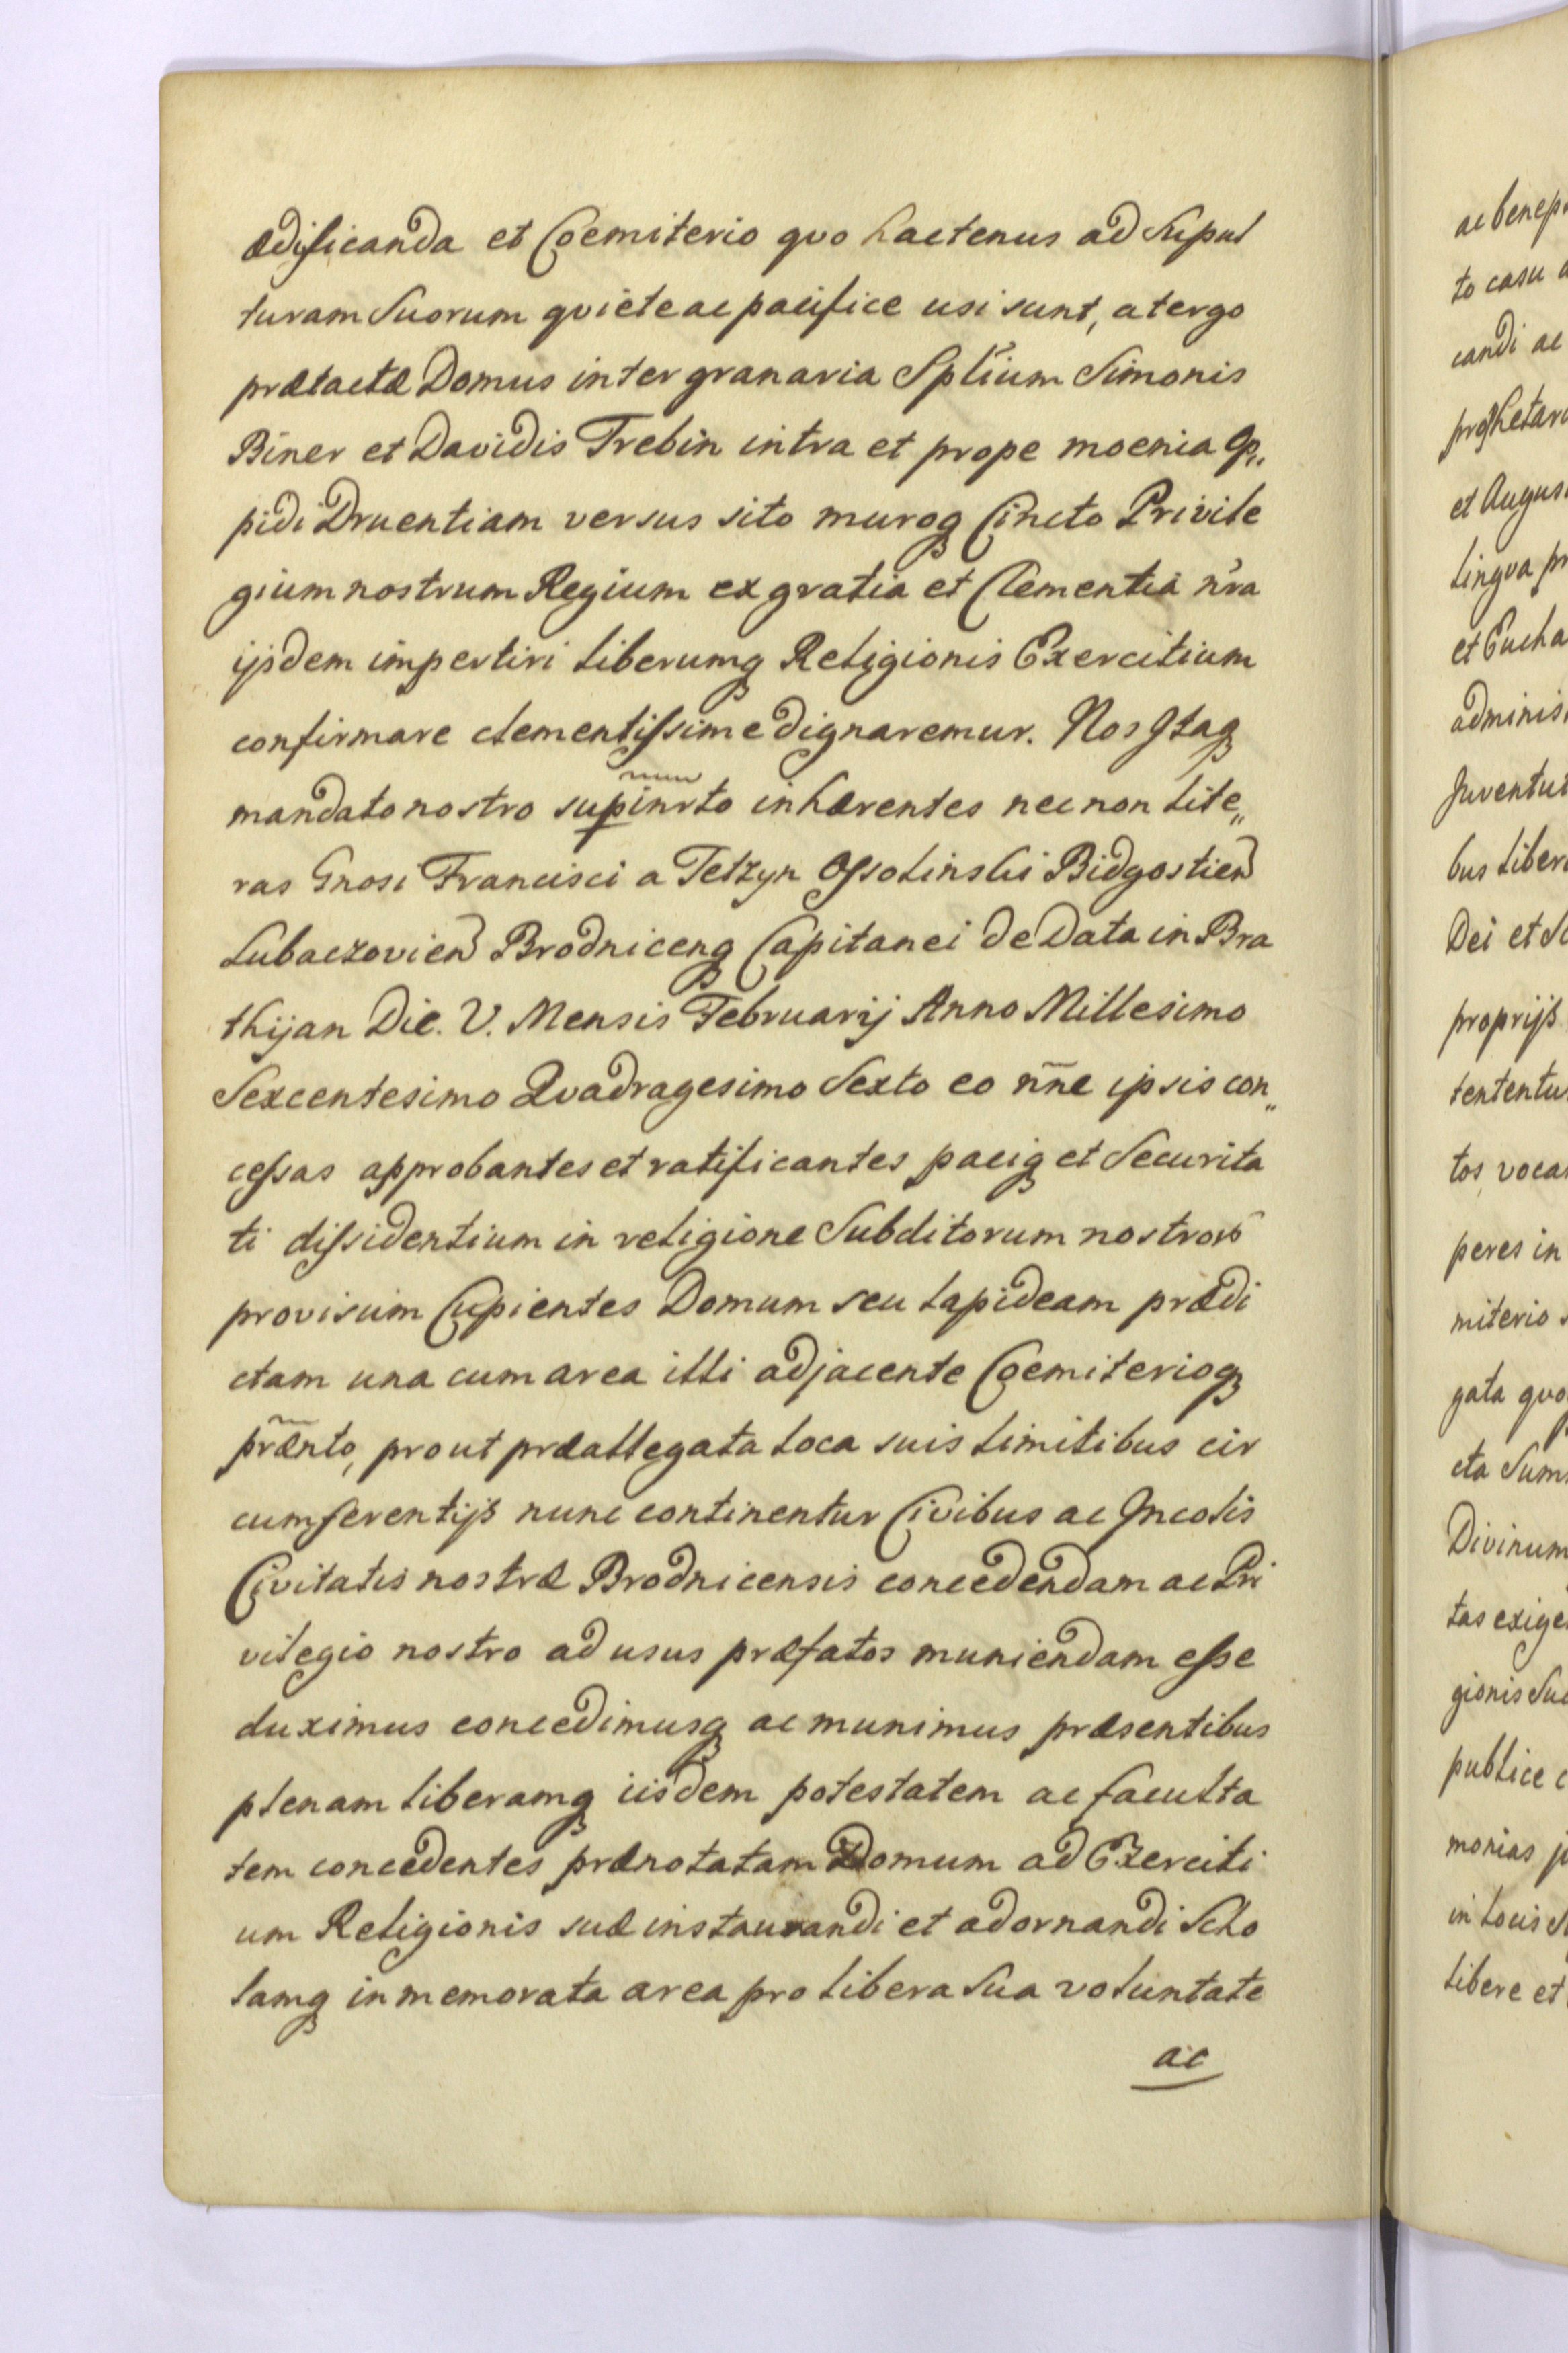 ædificanda et Coemiterio qvo hactenus ad Supul
turam Suorum qviete ac pacifice usi sunt, a tergo
prætactæ Domus inter granaria Splium Simonis
Biner et Davidis Trebin intra et prope moenia Op„
pidi Druentiam versus sito muroq Cincto Privile
gium nostrum Regium ex gratia et Clementia nra
ijsdem impertiri liberumq Religionis Exercitium
confirmare clementissime dignaremur. Nos Itaq
mandato nostro supinrto inhærentes nec non lite„
ras Gnosi Francisci a Tetzyn Ossolinski Bidgostien
Lubaczovien Brodniceng Capitanei de Data in Bra
thijan Die. V. Mensis Februarij Anno Millesimo
Sexcentesimo Qvadragesimo Sexto eo nñe ipsis con„
cessas approbantes et ratificantes paciq et Securita
ti dissidentium in religione Subditorum nostror
provisum Cupientes Domum seu lapideam prædi
ctam una cum area illi adjacente Coemiterioq
prænto, prout præallegata loca suis limitibus cir
cumferentijs nunc continentur Civibus ac Incolis
Civitatis nostræ Brodnicensis concedendam ac Pri
vilegio nostro ad usus præfatos muniendam esse
duximus concedimusq ac munimus præsentibus
plenam liberamq iisdem potestatem ac faculta
tem concedentes prænotatam Domum ad Exerciti
um Religionis suæ instaurandi et adornandi Scho
lamq in memorata area pro libera Sua voluntate
ac
ac
to casu
candi ac
et
lingva
et
Dei et
proprijs
tos, voca
peres in
miterio
gata
cta
Divinum
publice
monias
in locis
libere et